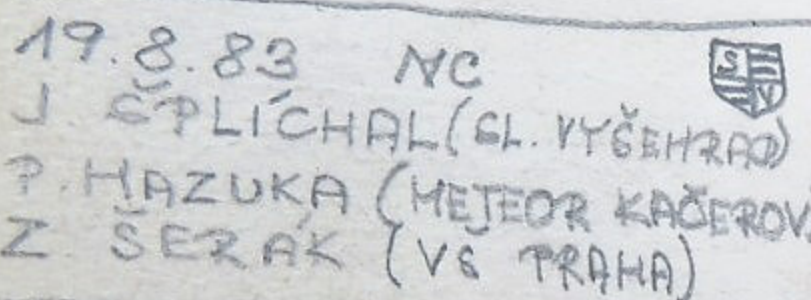 19.8.83 NC
J. ŠPLÍCHAL (SL. VYŠEHRAD)
SV
P. HAZUKA (METEOR KAČEROV)
Z. ŠERÁK (VS PRAHA)